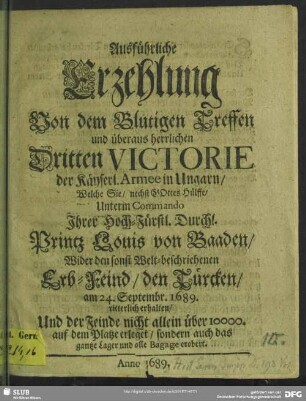 Ausführliche
Erzehlung
Von dem Blutigen Treffen
und überaus herrlichen
Dritten VICTORIE
der Käyserl. Armee in Ungarn/
Welche Sie/ nechst GOttes Hülffe/
Unterm Commando
Ihrer Hoch-Fürstl. Durchl.
Printz Louis von Baaden/
Wider den sonst Welt-beschriebenen
Erb-Feind/ den Türcken/
am 24. Septembr. 1689.
ritterlich erhalten/
Und der Feinde nicht allein über 10000.
auf dem Platze erleget/ sondern auch das
gantze Lager und alle Bagage erobert.
Anno 1689.
SLUB
DFG